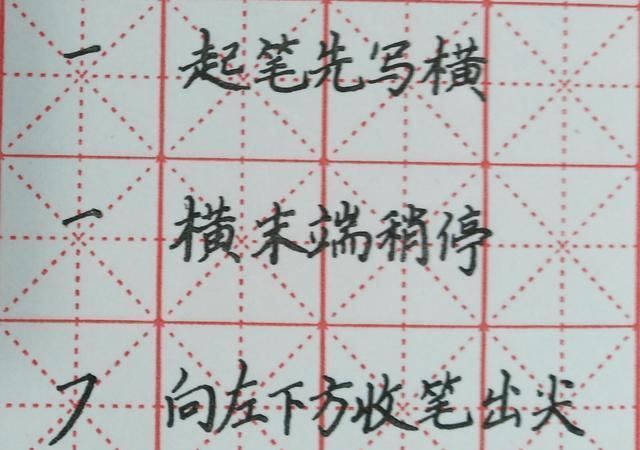 一 起笔先写横
一 横末端稍停
㇇ 向左下方收笔出尖